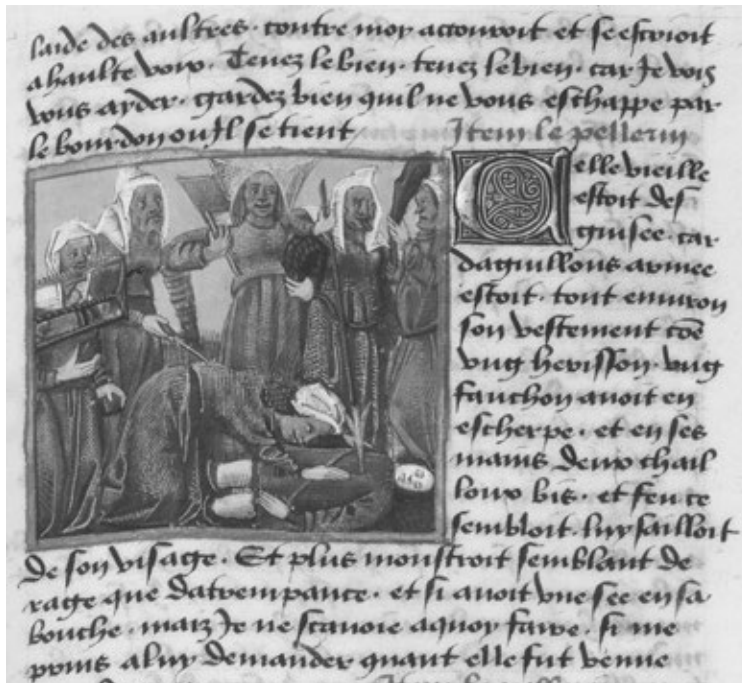 laide des aultres · contre moy accouroit et se escrioit
a haulte voix · Tenez le bien · tenez le bien · car Je vois
vous ayder · gardez bien quil ne vous eschappe par
le bourdon ou Il se tient Item le pellerin
Celle vieille
estoit des
guisee · car
daguillons armee
estoit · tout enuiron
son vestement coē
vng herisson · vng
fauchon auoit en
escherpe · et en ses
mains deux chail
loux bis · et feu ce
sembloit · luy sailloit
de son visage · Et plus monstroit semblant de
rage que datrempance · et si auoit vne see en sa
bouche · maiz Je ne scauoie a quoy faire · si me
prins a luy demander quant elle fut venue